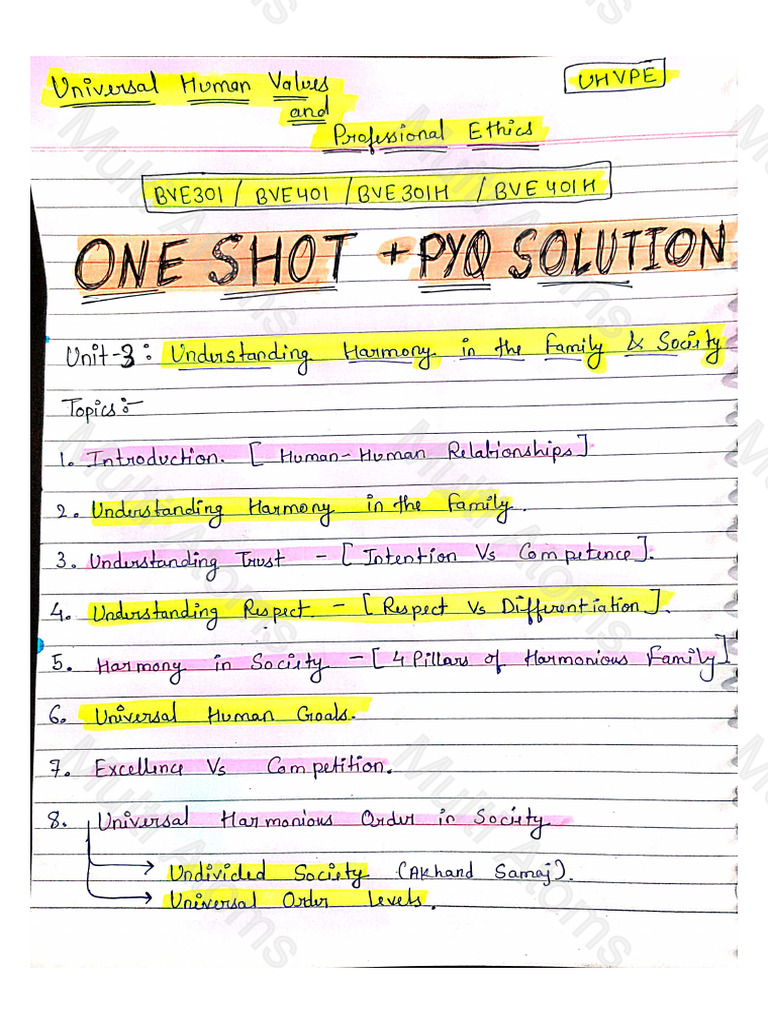 Universal Human Values
UHVPE
and
Professional Ethics
BVE301 / BVE401 / BVE301H / BVE401H
ONE SHOT + PYQ SOLUTION
Unit-3: Understanding Harmony in the Family & Society
Topics:-
1. Introduction. [ Human-Human Relationships]
2. Understanding Harmony in the Family.
3. Understanding Trust - [ Intention Vs Competence].
4. Understanding Respect. - [ Respect Vs Differentiation].
5. Harmony in Society - [ 4 Pillars of Harmonious Family]
6. Universal Human Goals.
7. Excellence Vs Competition.
8. Universal Harmonious Order in Society
Undivided Society (Akhand Samaj).
Universal Order Levels.
Multi Atoms